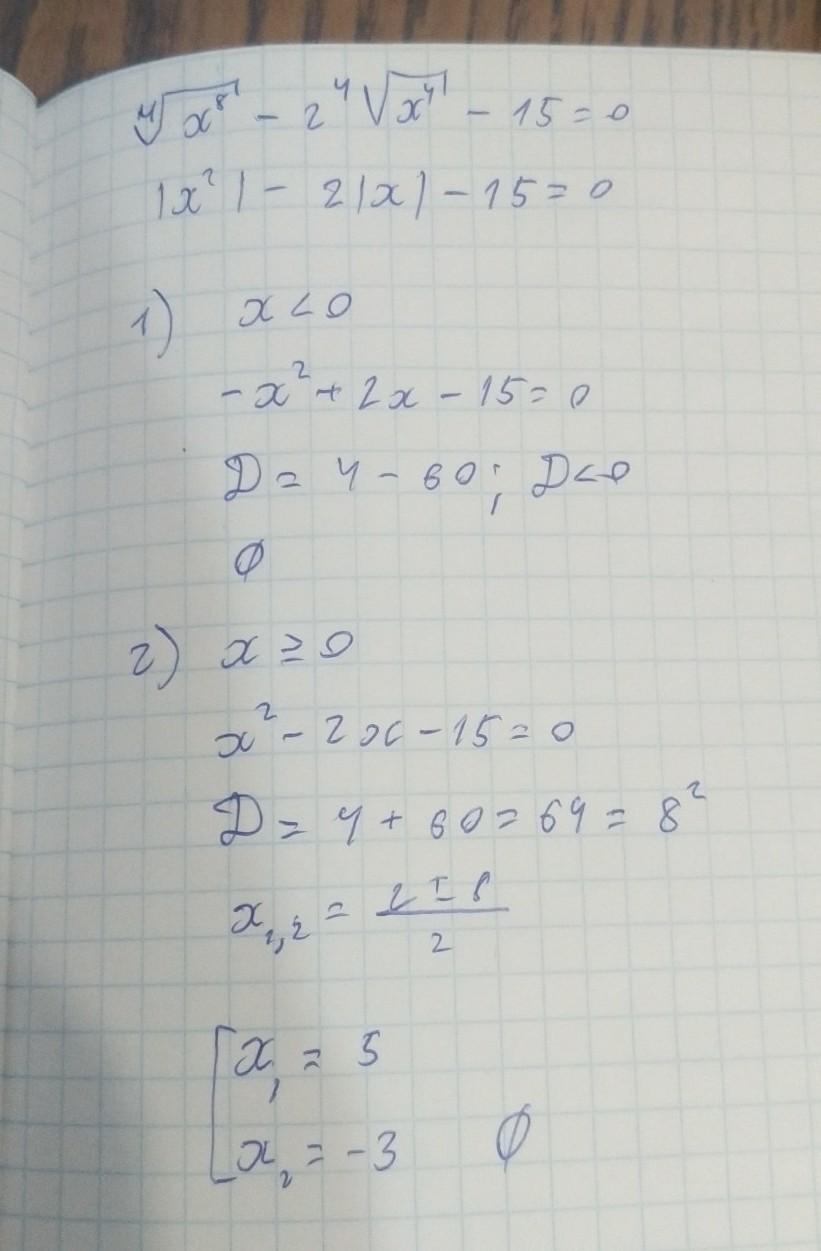 ⁴√x⁸ - 2 ⁴√x⁴ - 15 = 0
|x²| - 2|x| - 15 = 0
1) x < 0
-x² + 2x - 15 = 0
D = 4 - 60; D < 0
∅
2) x ≥ 0
x² - 2x - 15 = 0
D = 4 + 60 = 64 = 8²
x₁,₂ = (2 ± 8)/2
[ x₁ = 5
x₂ = -3 ∅